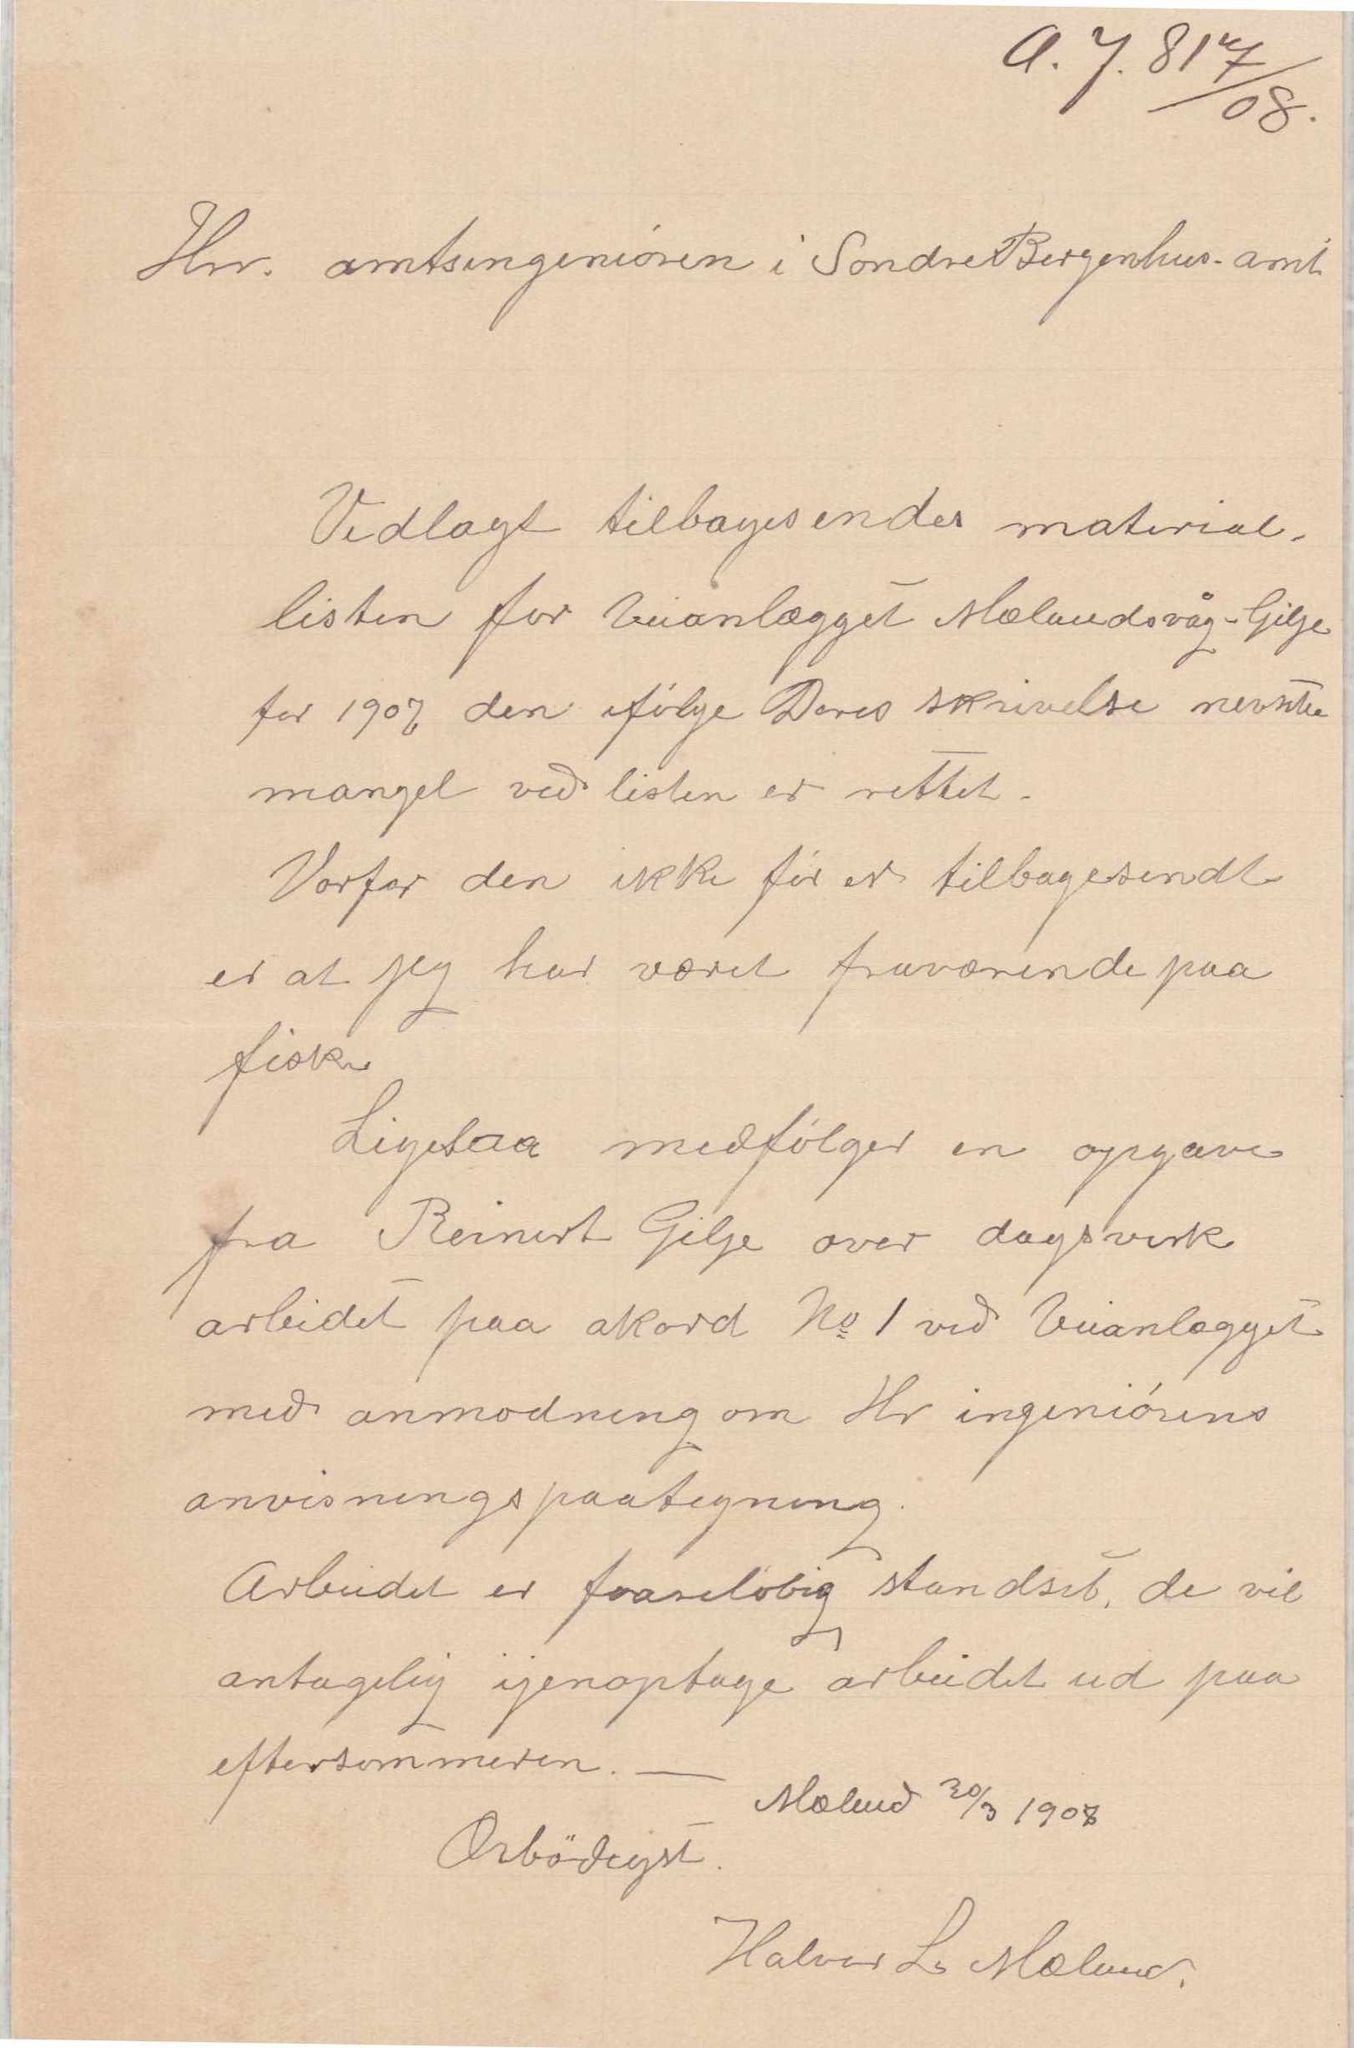 A. J. 817/08.
Hrr. amtsingeniören i Söndre Bergenhus amt
Vedlagt tilbagesendes material-
listen for Veianlægget Mælandsvåg-Gilje
for 1907 den ifölge Deres skrivelse nevnte
mangel ved listen er rettet.
Vorfor den ikke för er tilbagesendt
er at jeg har været fraværende paa
fiske
Ligesaa medfölger en opgave
fra Reinert Gilje over dagsverk
arbeidet paa akord No 1 ved Veianlægget
med anmodning om Hr ingeniörens
anvisningspaategning.
Arbeidet er foorelöbig standset, de vil
antagelig igenoptage arbeidet ud paa
eftersommeren. —
Mælend 20/3 1908
Ærbödigst.
Halvor L. Mæland.